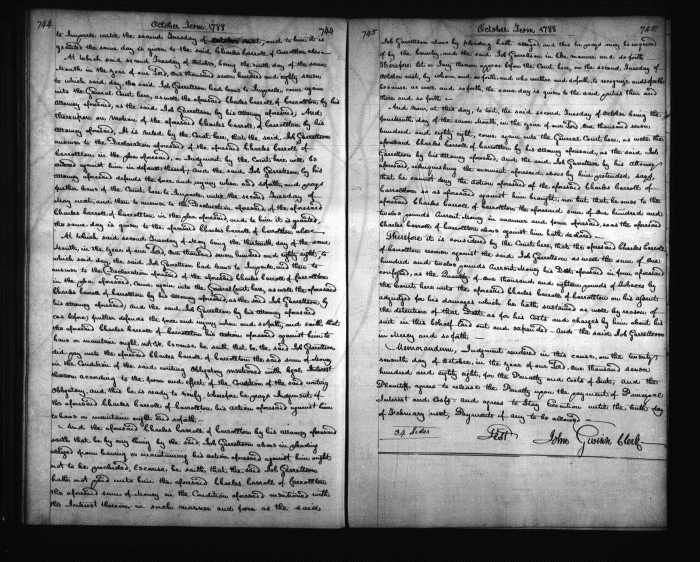 744 October Term 1788 744
to Imparle until the second Tuesday of October next, and to him it is
granted the same day is given to the said Charles Carroll of Carrollton also
At which said second Tuesday of October, being the ninth day of the same
Month in the year of our Lord, one thousand seven hundred and eighty seven
to which said day, the said Job Garrettson had leave to Imparle, came again
into the General Court here, as well the aforesaid Charles Carroll of Carrollton by his
attorney aforesaid, as the said Job Garrettson by his attorney aforesaid, And
thereupon on Motion of the aforesaid Charles Carroll, of Carrollton by his
attorney aforesaid, It is ruled by the Court here, that the said Job Garrettson
answer to the Declaration aforesaid of the aforesaid Charles Carroll of
Carrollton in the plea aforesaid, or Judgment by the Court here will be
against him in default thereof; And the said Job Garrettson by his
attorney aforesaid defends the force and injury when and soforth, and prays
further leave of the Court here to Imparle until the second Tuesday of
May next, and then to answer to the Declaration aforesaid of the aforesaid
Charles Carroll of Carrollton in the plea aforesaid, and to him it is granted,
the same day is given to the aforesaid Charles Carroll of Carrollton also
At which said second Tuesday of May being the thirteenth day of the same
Month, in the year of our Lord, one thousand seven hundred and eighty eight, to
which said day the said Job Garrettson had leave to Imparle, and then to
answer to the Declaration aforesaid of the aforesaid Charles Carroll of Carrollton
in the plea aforesaid, came again into the General Court here, as well the aforesaid
Charles Carroll of Carrollton by his attorney aforesaid, as the said Job Garrettson, by
his attorney aforesaid, and the said Job Garrettson by his attorney aforesaid
(as before) further defends the force and injury when and soforth, and saith that
the aforesaid Charles Carroll of Carrollton his action aforesaid against him to
have or maintain ought not &c. because he saith that he, the said Job Garrettson
did pay unto the aforesaid Charles Carroll of Carrollton the said sum of Money
in the Condition of the said writing Obligatory mentioned with legal Interest
thereon according to the form and effect of the Condition of the said writing
Obligatory, and this he is ready to verify, wherefore he prays Judgment if
the aforesaid Charles Carroll of Carrollton, his action aforesaid against him
to have or maintain ought and soforth
And the aforesaid Charles Carroll of Carrollton by his attorney aforesaid
saith that he by any thing by the said Job Garrettson above in pleading
alleged from having or maintaining his action aforesaid against him ought
not to be precluded, because he saith that the said Job Garrettson
hath not paid unto him the aforesaid Charles Carroll of Carrollton
the aforesaid sum of Money in the Condition aforesaid mentioned with
the Interest thereon in such manner and form as the said
745 October Term 1788 745
Job Garrettson above by pleading hath alleged, and this he prays may be enquired
of by the Country, and the said Job Garrettson in like manner and soforth
Therefore let a Jury thereon appear before the Court here, on the second Tuesday of
October next, by whom and soforth, and who neither and soforth, to recognize and soforth
because as well and soforth, the same day is given to the said parties then and
there and so forth
And now, at this day, to wit, the said second Tuesday of October being the
fourteenth day of the same Month, in the year of our Lord, one thousand seven
hundred and eighty eight, come again into the General Court here, as well the
aforesaid Charles Carroll of Carrollton by his attorney aforesaid, as the said Job
Garrettson by his attorney aforesaid, and the said Job Garrettson by his attorney
aforesaid relinquishing the averment aforesaid, above by him pretended, says
that he cannot deny the action aforesaid of the aforesaid Charles Carroll of
Carrollton as is aforesaid against him brought, nor but that he owes to the
aforesaid Charles Carroll of Carrollton the aforesaid sum of One hundred and
twelve pounds Current Money in manner and form aforesaid, so as the aforesaid
Charles Carroll of Carrollton above against him hath declared
Therefore it is considered by the Court here, that the aforesaid Charles Carroll
of Carrollton recover against the said Job Garrettson as well the sum of One
hundred and twelve pounds Current Money his Debt aforesaid in form aforesaid
confessed, as the Quantity of one thousand and eighteen pounds of Tobacco by
the Court here unto the aforesaid Charles Carroll of Carrollton on his assent
adjudged for his damages which he hath sustained as well by reason of
the detention of that Debt, as for his Costs and charges by him about his
suit in this behalf laid out and expended And the said Job Garrettson
in Mercy and so forth
Memorandum, Judgment rendered in this cause, on the twenty
seventh day of October, in the year of our Lord, one thousand seven
hundred and eighty eight, for the Penalty and Costs of Suit, And the
Plaintiff agrees to release the Penalty upon the payment of Principal
Interest and Costs and agrees to Stay Execution until the fifth day
of February next, Payments if any to be allowed
34 Sides
Test John Gwinn Clerk